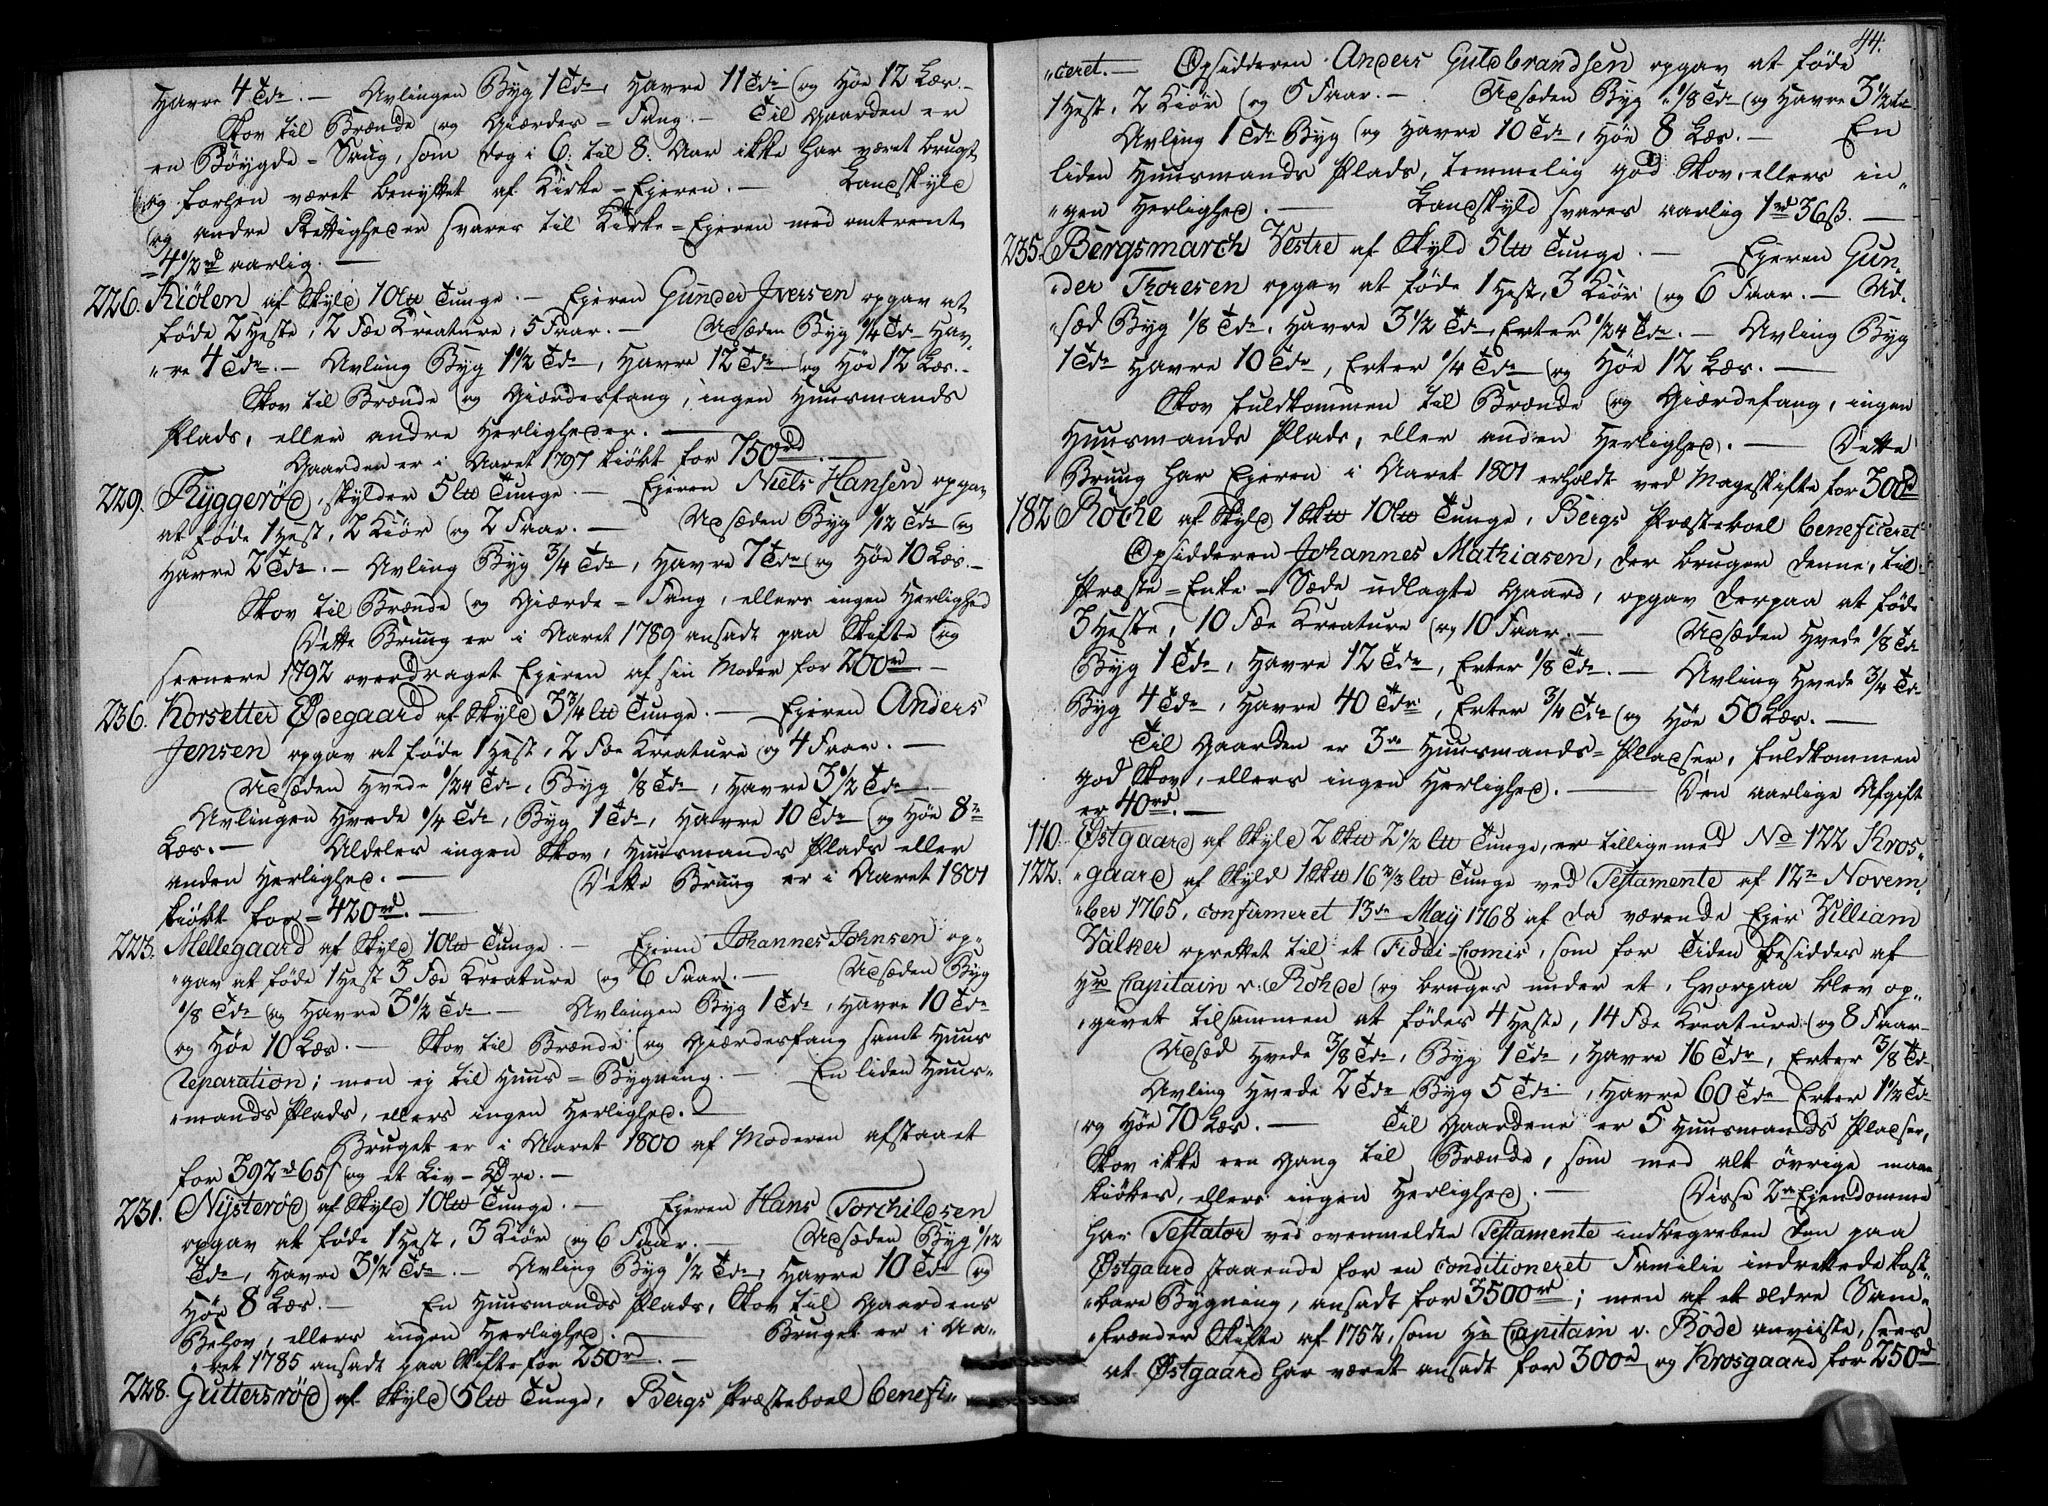 Havre 4 Tdr. — Avlingen Byg 1 Tde, Havre 11 Tdr og Høe 12 Læs. —
Skov til Brænde og Giærdes = Fang. — Til Gaarden er
en Bøygde = Saug, som dog i 6: til 8: Aar ikke har været brugt
og forhen været benyttet af Kirke = Ejeren. — Landskyld
og andre Rettigheder svares til Kirke = Ejeren med omtrent
= 4 1/2 rd aarlig. —
226. Kiølen af Skyld 10 lb Tunge. — Ejeren Gunder Iversen opgav at
føde 2 Heste, 2 Fæe Kreature, 5 Faar. — Udsæden Byg 1/4 Tde Hav„
„re 4 Tdr. — Avling Byg 1 1/2 Tde, Havre 12 Tdr og Høe 12 Læs. —
Skov til Brænde og Giærdesfang, ingen Huusmands
Plads, eller andre Herligheder. —
Gaarden er i Aaret 1797 kiøbt for 750 rd. —
229. Ryggerød, skylder 5 lb Tunge. — Ejeren Niels Hansen opgav
at føde 1 Hest, 2 Kiør og 2 Faar. — Udsæden Byg 1/12 Tde og
Havre 2 Tdr. — Avling Byg 3/4 Tde, Havre 7 Tdr og Høe 10 Læs. —
Skov til Brænde og Giærde = Fang, ellers ingen Herlighed
Dette Bruug er i Aaret 1789 ansadt paa Skifte og
seenere 1792 overdraget Ejeren af sin Moder for 200 rd —
236. Korsetter Ødegaard af Skyld 3 3/4 lb Tunge. — Ejeren Anders
Jensen opgav at føde 1 Hest, 2 Fæe Kreature og 4 Faar. —
Udsæden Hvede 1/24 Tde, Byg 1/8 Tde, Havre 3 1/2 Tde
Avlingen Hvede 1/4 Tde, Byg 1 Tde, Havre 10 Tdr og Høe 8te
Læs. — Aldeles ingen Skov, Huusmands Plads eller
anden Herlighed. — Dette Bruug er i Aaret 1801
kiøbt for = 420 rd. —
223. Mellegaard af Skyld 10 lb Tunge. — Ejeren Johannes Johnsen op„
„gav at føde 1 Hest 3 Fæe Kreature og 6 Faar. — Udsæden Byg
1/8 Tde og Havre 3 1/2 Tde — Avlingen Byg 1 Tde, Havre 10 Tdr
og Høe 10 Læs. — Skov til Brænde og Giærdesfang samt Huus
Reparation; men ej til Huus = Bygning. — En liden Huus„
„mands Plads, ellers ingen Herlighed. —
Bruget er i Aaret 1800 af Moderen afstaaet
for 392 rd 65 s og et Liv = Øre. —
231. Nysterød af Skyld 10 lb Tunge. — Ejeren Hans Torchildsen
opgav at føde 1 Hest, 3 Kiør og 6 Faar. — Udsæden Byg 1/12
Tde, Havre 3 1/2 Tde. — Avling Byg 1/2 Tde, Havre 10 Tdr og
Høe 8 Læs. — En Huusmands Plads, Skov til Gaardens
Behov, ellers ingen Herlighed. — Bruget er i Aa„
„ret 1785 ansadt paa Skifte for 250 rd. —
228. Guttersrød af Skyld 5 lb Tunge, Bergs Præsteboel benefi„
44.
„ceret. — Opsidderen Anders Guldbrandsen opgav at føde
1 Hest, 2 Kiør og 5 Faar. — Udsæden Byg 1/8 Tde og Havre 3 1/2 Tde
Avling 1 Tde Byg og Havre 10 Tdr, Høe 8 Læs. — En
liden Huusmands Plads, temmelig god Skov, ellers in„
„gen Herlighed. — Landskyld svares aarlig 1 rd 36 ß. —
235. Bergsmarch Vestre af Skyld 5 lb Tunge. — Ejeren Gun„
„der Thoresen opgav at føde 1 Hest, 3 Kiør og 6 Faar. — Ud„
„sæd Byg 1/8 Tde, Havre 3 1/2 Tde, Erter 1/24 Tde. — Avling Byg
1 Tde Havre 10 Tdr, Erter 1/4 Tde og Høe 12 Læs. —
Skov fuldkommen til Brænde og Giærdefang, ingen
Huusmands Plads, eller anden Herlighed. — Dette
Bruug har Ejeren i Aaret 1801 erholdt ved Mageskifte for 300 rd
182 Röche af Skyld 1 Skb 10 lb Tunge, Bergs Præsteboel beneficeret
Opsidderen Johannes Mathiasen, der bruger denne, til
Præste = Enke = Sæde udlagte Gaard, opgav derpaa at føde
3 Heste, 10 Fæe Kreature og 10 Faar. — Udsæden Hvede 1/8 Tde
Byg 1 Tde, Havre 12 Tdr, Erter 1/8 Tde. — Avling Hvede 3/4 Tde
Byg 4 Tdr, Havre 40 Tdr, Erter 3/4 Tde og Høe 50 Læs. —
Til Gaarden er 3de Huusmands = Pladser, fuldkommen
god Skov, ellers ingen Herlighed. — Den aarlige Afgift
er 40 rd. —
110. Østgaard af Skyld 2 Skb 2 1/2 lb Tunge, er tilligemed No 122 Kros„
122. „gaard af Skyld 1 Skb 16 2/3 lb Tunge ved Testamente af 12te Novem„
„ber 1765, confirmeret 13de May 1768 af da værende Ejer William
Valker oprettet til et Fidei = Comis, som for Tiden besiddes af
Hr. Capitain v. Rohde og bruges under et, hvorpaa blev op„
„givet tilsammen at fødes 4 Heste, 14 Fæe Kreature og 8 Faar —
Udsæd Hvede 3/8 Tde, Byg 1 Tde, Havre 16 Tdr, Erter 3/8 Tde
Avling Hvede 2 Tdr Byg 5 Tdr, Havre 60 Tdr Erter 1 1/2 Tde
og Høe 70 Læs. — Til Gaardene er 5 Huusmands Pladser,
Skov ikke een Gang til Brænde, som med alt øvrige maae
kiøbes, ellers ingen Herlighed. — Disse 2de Ejendomme
har Testator ved ovenmeldte Testamente indbegreben den paa
Østgaard staaende for en conditioneret Familie indrettede kost„
„bare Bygning, ansadt for 3500 rd; men af et ældre Sam„
„frænder Skifte af 1752, som Hr Capitain v. Rode anviiste, sees
at Østgaard har været ansadt for 300 rd og Krosgaard for 250 rd